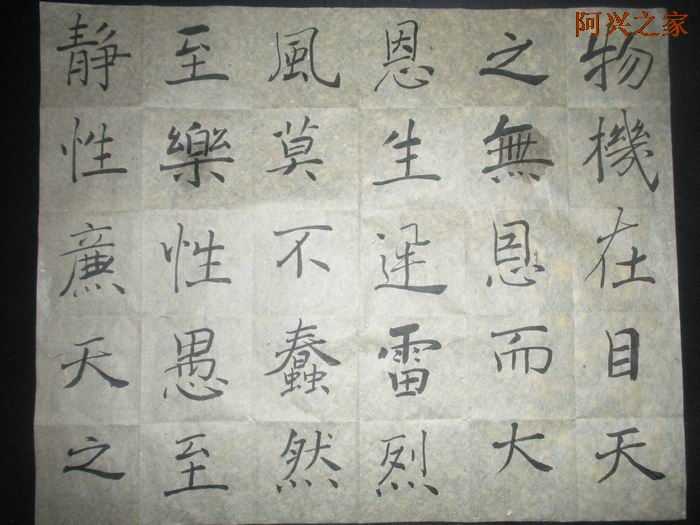 阿兴之家
物機在目天
之無恩而大
恩生迅雷烈
風莫不蠢然
至樂性愚至
静性廉天之